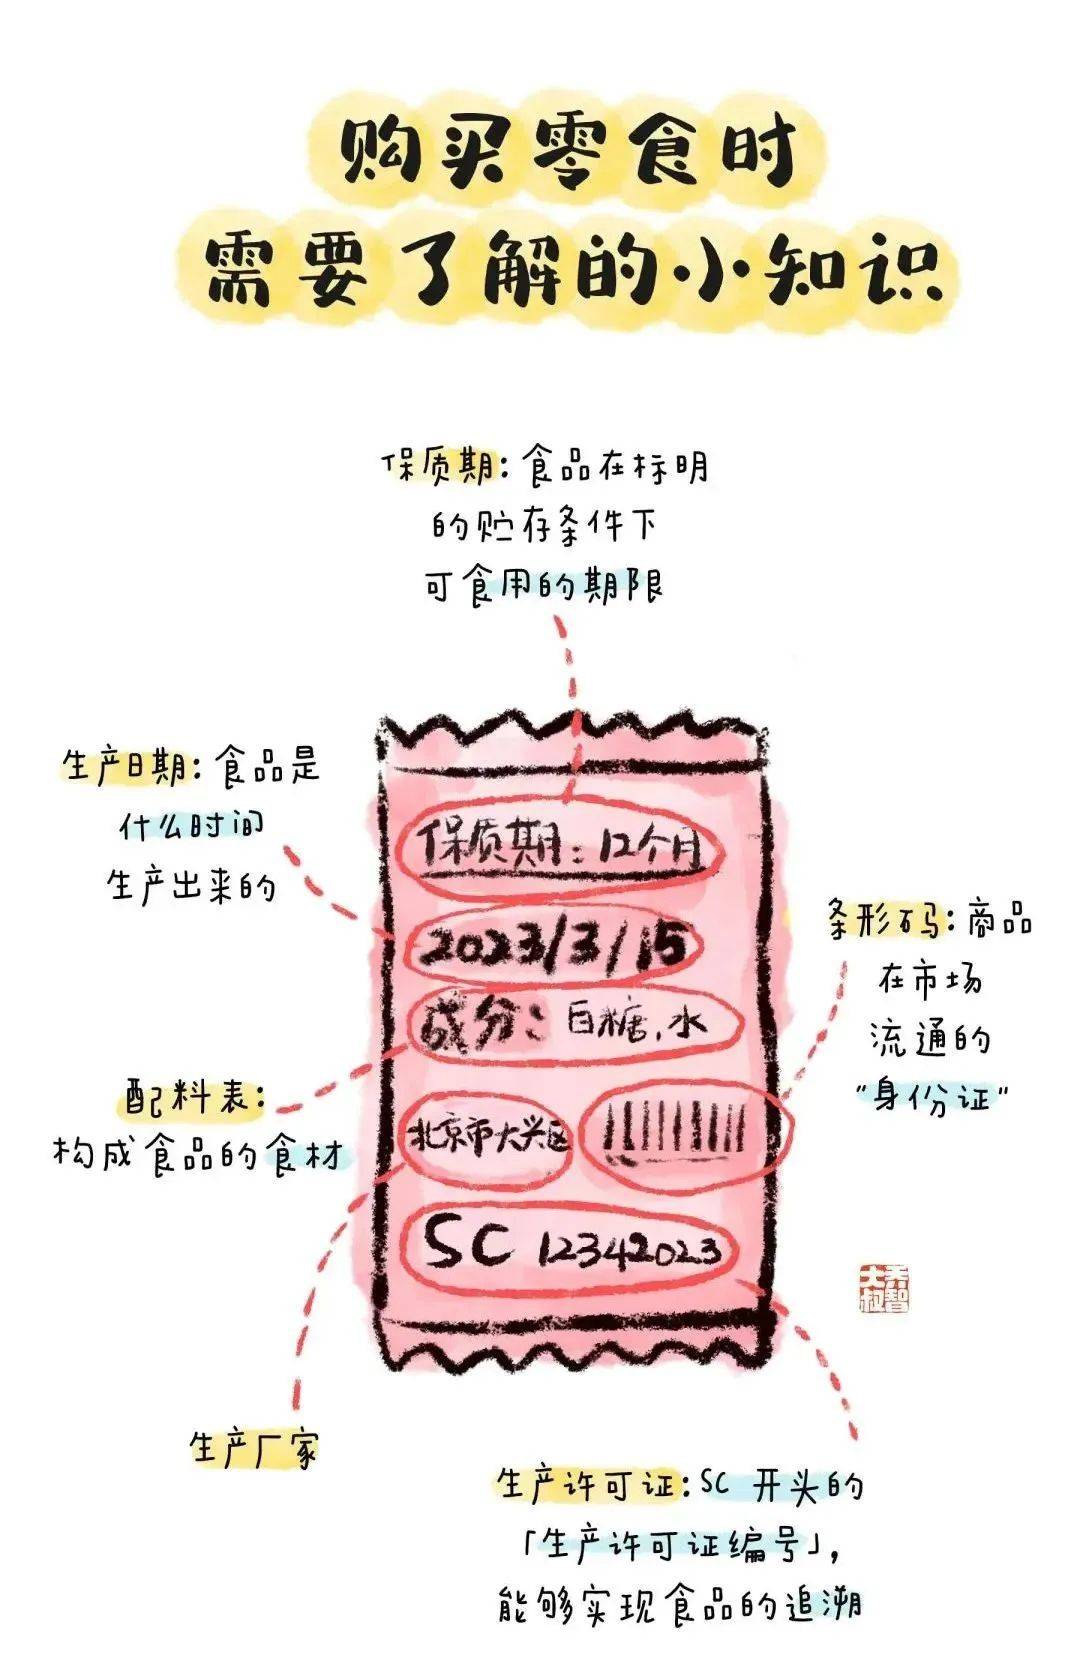 购买零食时
需要了解的小知识
保质期：食品在标明
的贮存条件下
可食用的期限
生产日期：食品是
什么时间
生产出来的
保质期：12个月
2023/3/15
成分：白糖，水
条形码：商品
在市场
流通的
“身份证”
配料表：
构成食品的食材
北京市大兴区
SC 12342023
乔智
大叔
生产厂家
生产许可证：SC 开头的
「生产许可证编号」，
能够实现食品的追溯